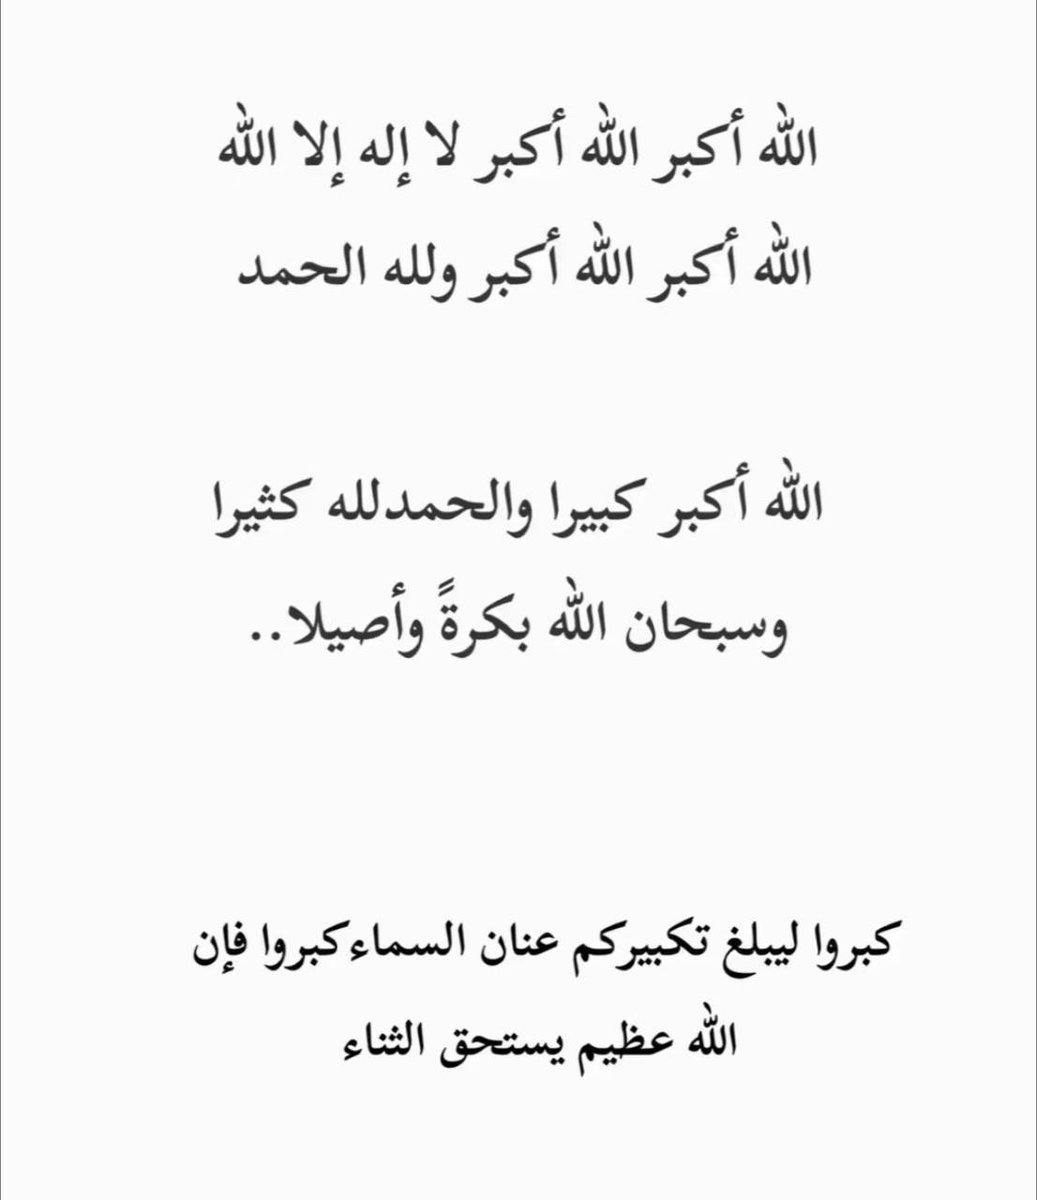 الله أكبر الله أكبر لا إله إلا الله
الله أكبر الله أكبر ولله الحمد
الله أكبر كبيرا والحمدلله كثيرا
وسبحان الله بكرةً وأصيلا..
كبروا ليبلغ تكبيركم عنان السماءكبروا فإن
الله عظيم يستحق الثناء